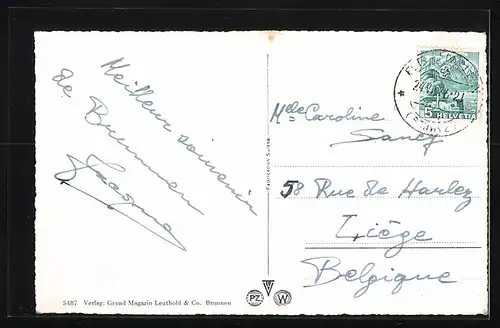 Meilleur souvenir
de Brunnen
Mlle Caroline
Sancy
58 Rue de Harlez
Liège
Belgique
5 HELVETIA
(SCHWYZ)
Fabrication Suisse
5487 Verlag: Grand Magazin Leuthold & Co. Brunnen
PZ
W